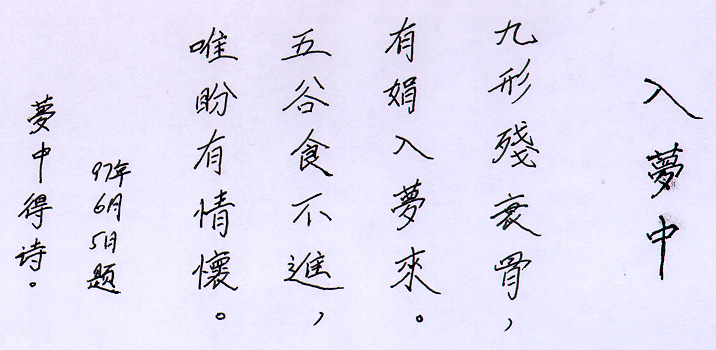 入夢中
九形殘衰骨，
有娟入夢來。
五谷食不進，
唯盼有情懷。
97年6月5日題
夢中得诗。